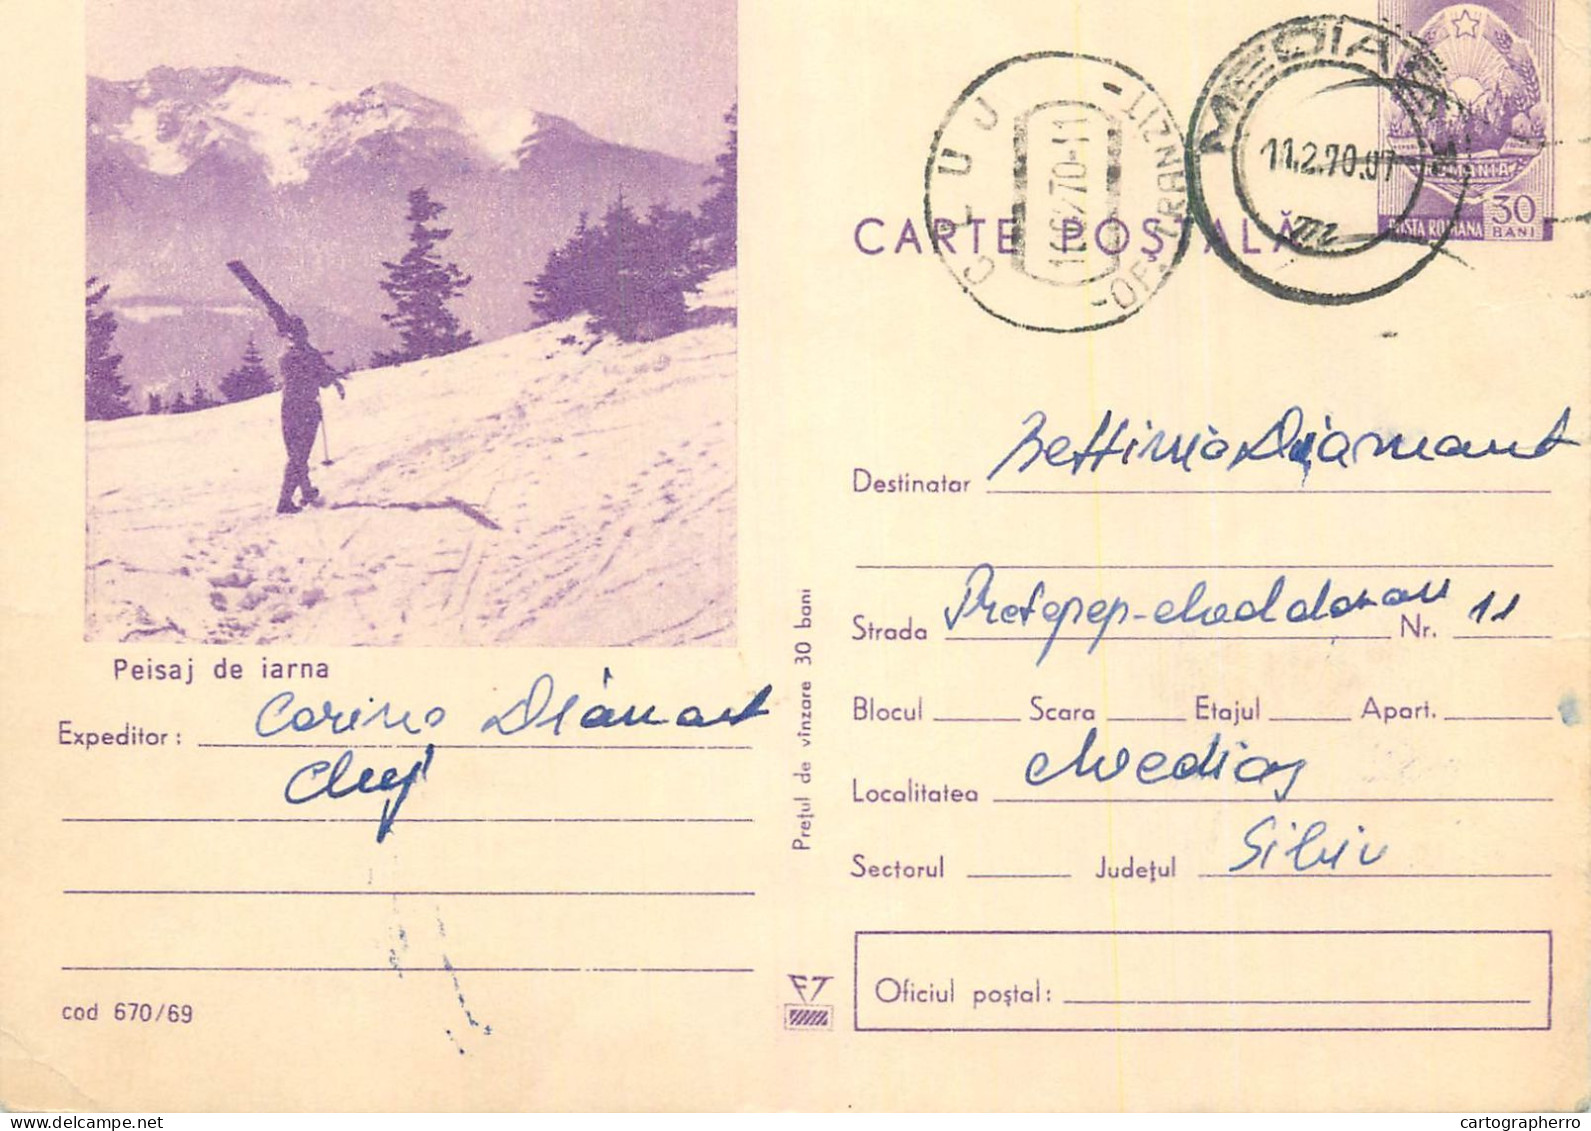 Peisaj de iarna
Expeditor: Corina Diamant
Cluj
cod 670/69
Prețul de vînzare 30 bani
CARTE POȘTALĂ
CLUJ
-OF. TRANZIT-
MEDIAȘ
11.2.70.07
ROMANIA
POSTA ROMANA
30
BANI
Destinatar Bettina Diamant
Strada Nr. 11
Blocul Scara Etajul Apart.
Localitatea Medias
Sectorul Județul Sibiu
Oficiul poștal:
cartographerro